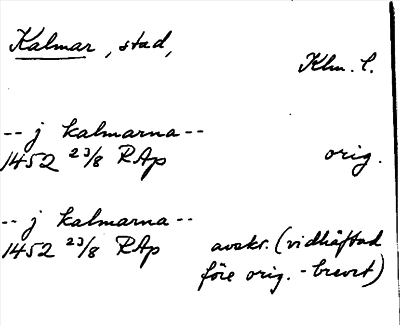 Kalmar, stad,
Klm. l.
-- j kalmarna --
1452 23/8 RAp orig.
-- j kalmarna --
1452 23/8 RAp avskr. (vidhäftad
före orig. - brevet)